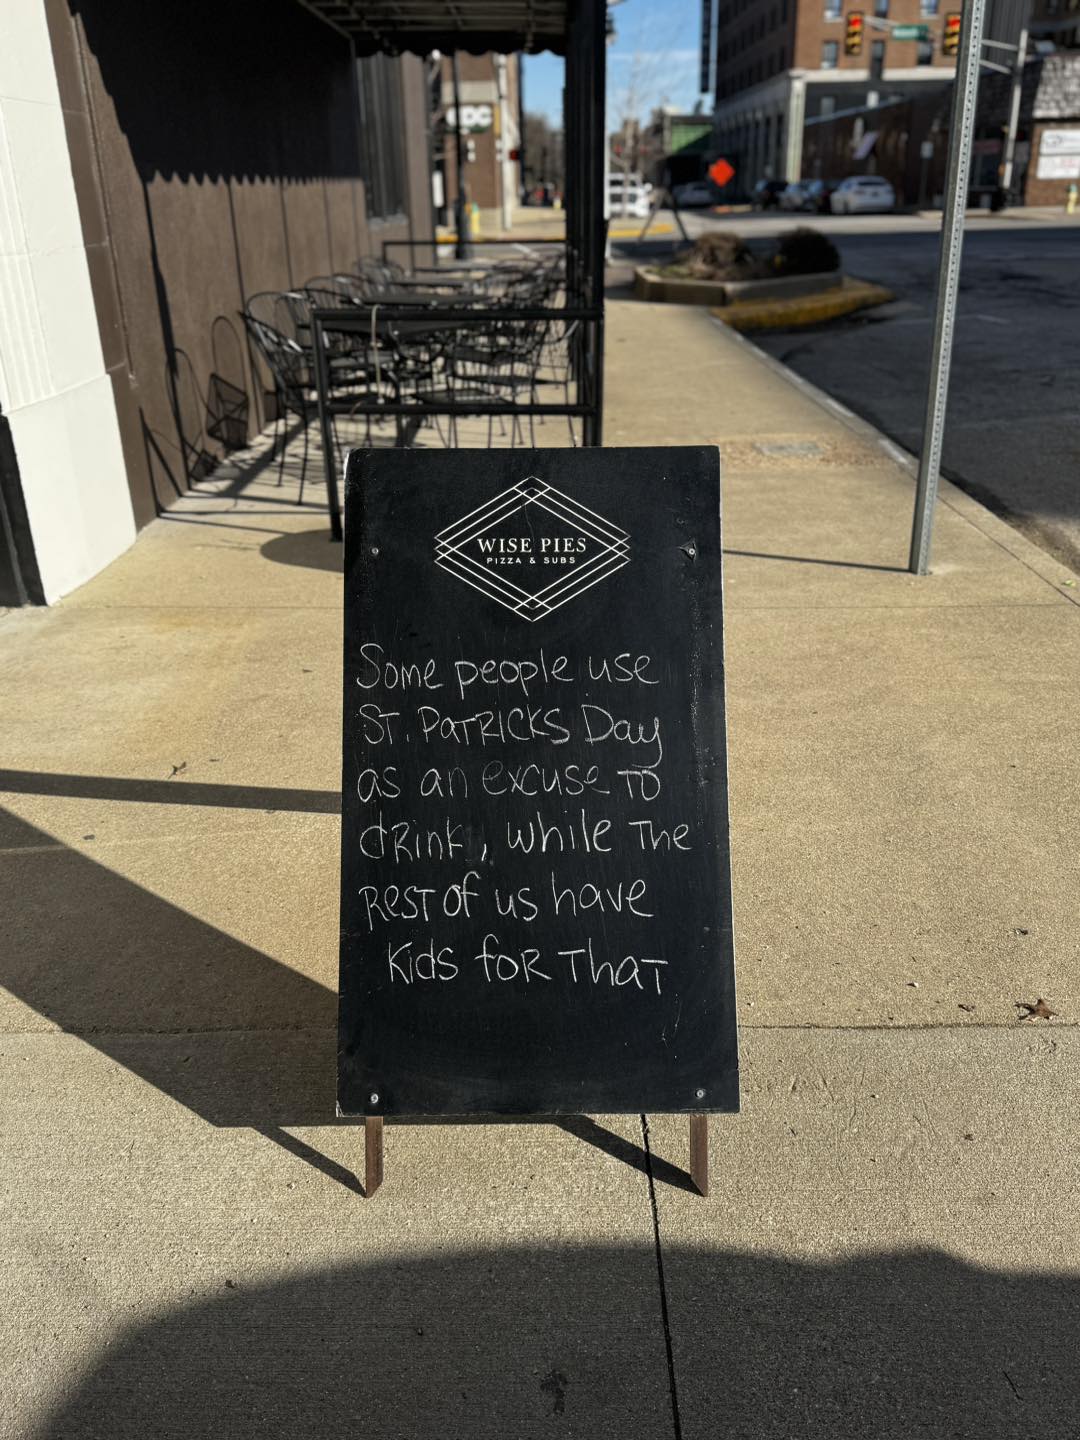 WISE PIES
PIZZA & SUBS
Some people use
ST. PATRICKS Day
as an excuse TO
dRink, while The
ResT of us have
Kids foR ThaT